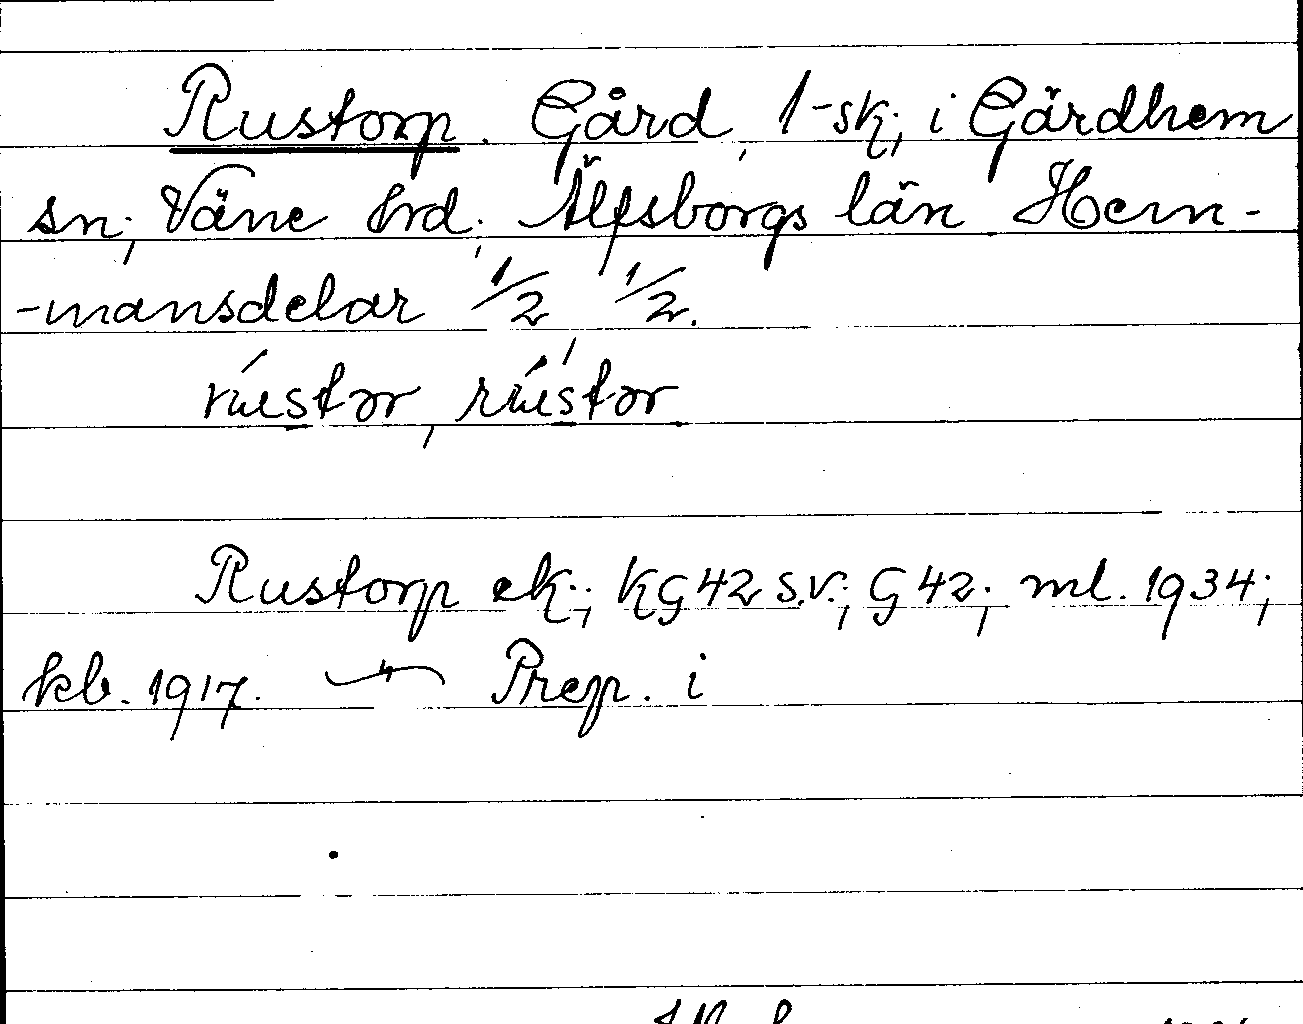 Rustorp. Gård, 1-sk; i Gärdhem
sn; Väne hrd; Älfsborgs län Hem-
-mansdelar 1/2 1/2.
Rustorp ek.; KG 42 s.v.; G 42; ml. 1934;
kb. 1917. Prep. i